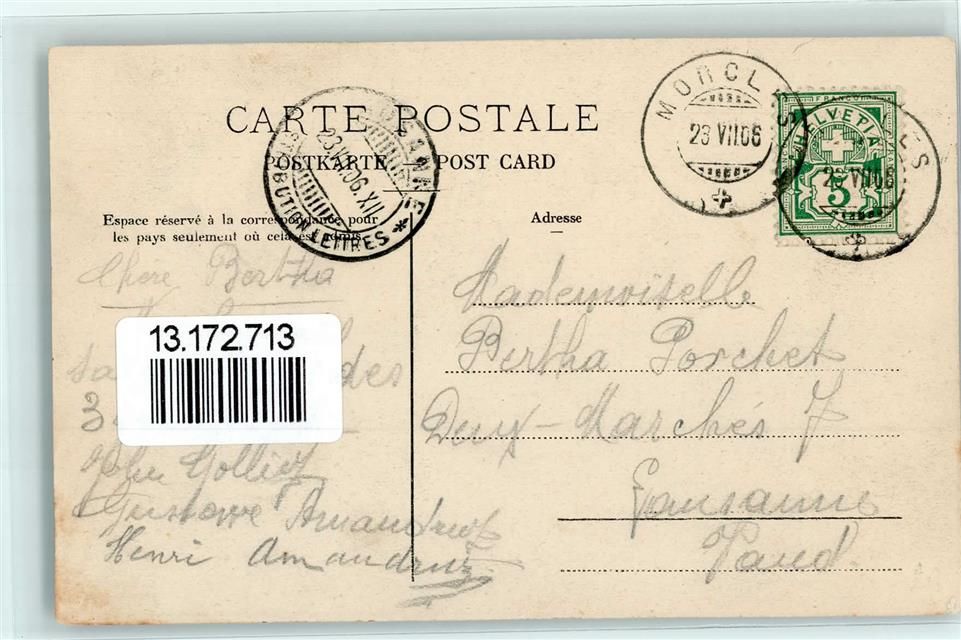 CARTE POSTALE
POSTKARTE POST CARD
Espace réservé à la correspondance pour
les pays seulement où cela est admis.
Adresse
MORCLES
23 VII.06
MORCLES
23 VII.06
HELVETIA
FRANCO
5
LAUSANNE
23.VII.06.XII
DISTRIBUTION LETTRES
Chere Bertha
des
3
13.172.713
Golliez
Gustave Amaudruz
Henri Amaudruz
Mademoiselle
Bertha Porchet
Deux-Marchés 7
Lausanne
Vaud.